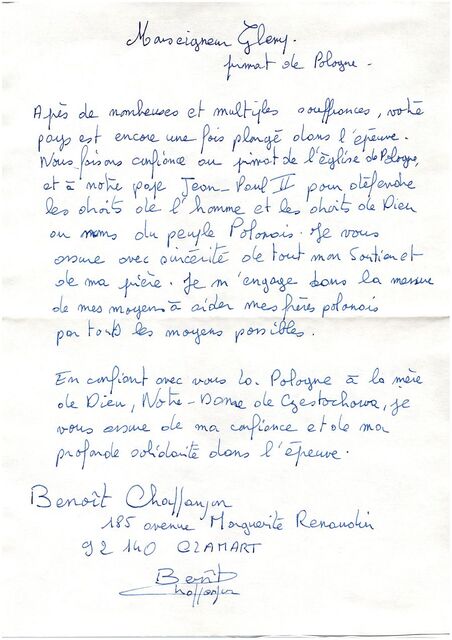 Monseigneur Glemp
primat de Pologne -
Après de nombreuses et multiples souffrances, votre
pays est encore une fois plongé dans l'épreuve.
Nous faisons confiance au primat de l'église de Pologne,
et à notre pape Jean-Paul II pour défendre
les droits de l'homme et les droits de Dieu
au noms du peuple Polonais. Je vous
assure avec sincérité de tout mon soutien et
de ma prière. Je m'engage dans la mesure
de mes moyens à aider mes frères polonais
par tous les moyens possibles.
En confiant avec vous la Pologne à la mère
de Dieu, Notre-Dame de Czestochowa, je
vous assure de ma confiance et de ma
profonde solidarité dans l'épreuve.
Benoît Chaffanjon
185 avenue Marguerite Renaudin
92 140 CLAMART
Benoît
Chaffanjon